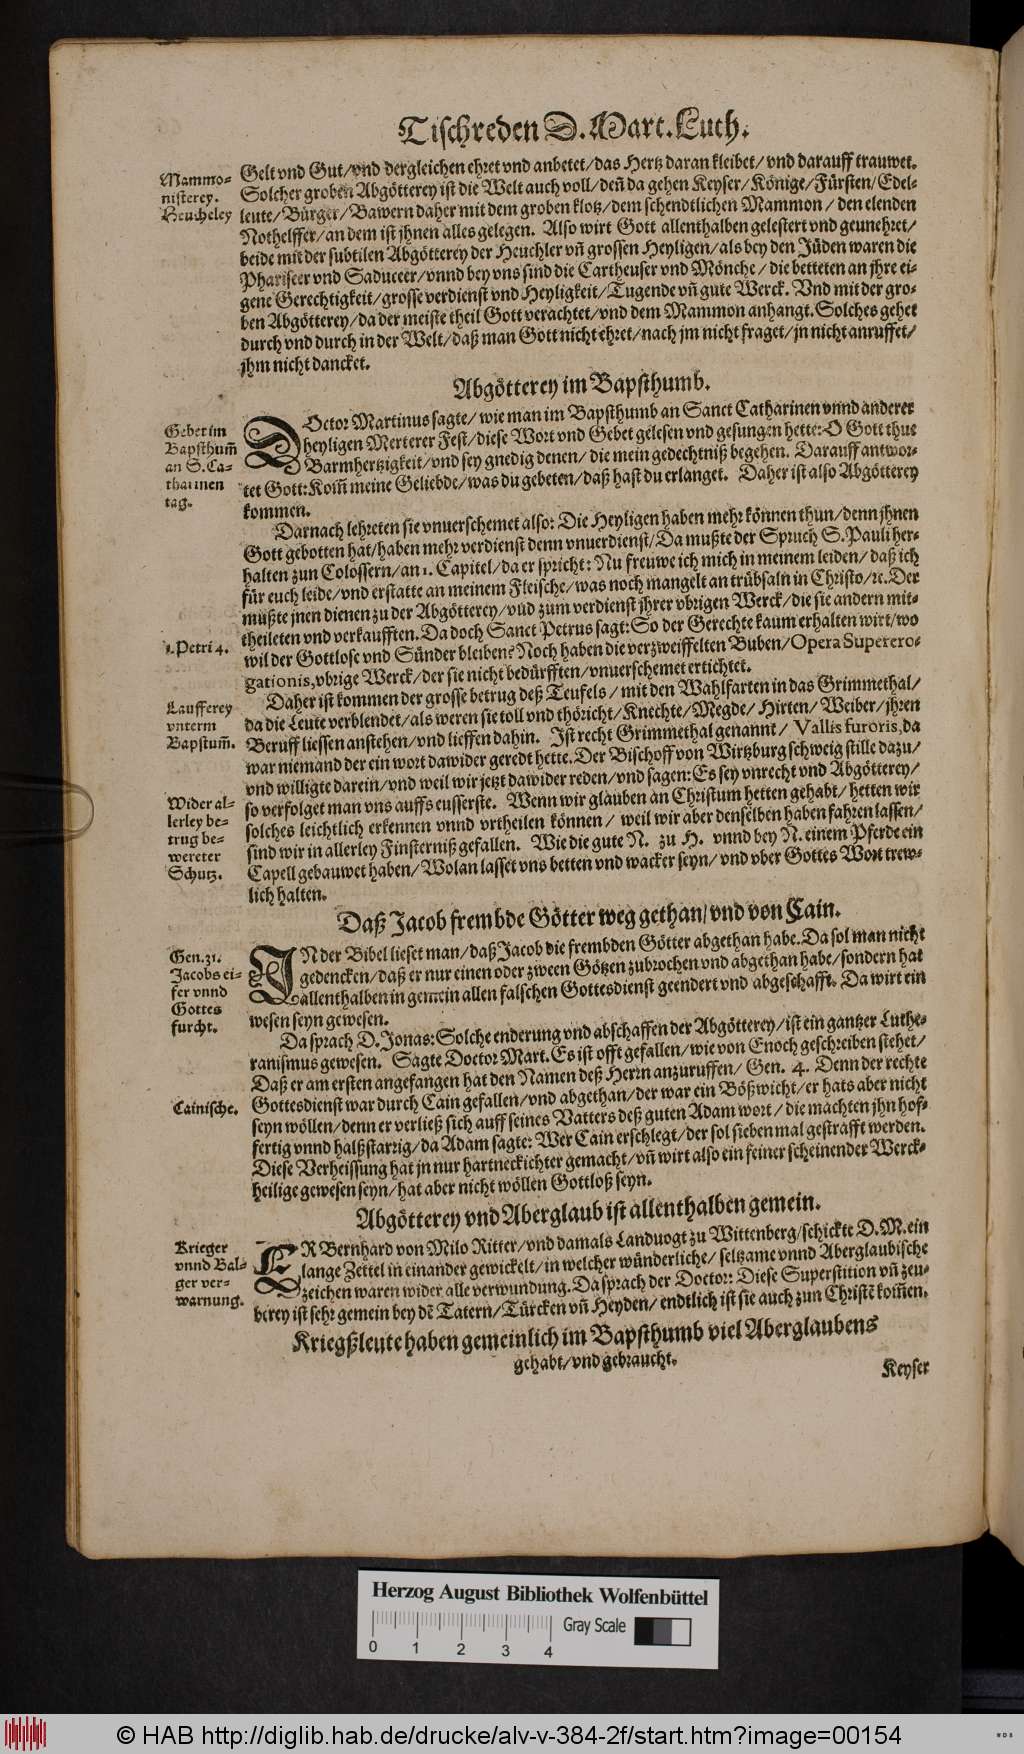 Tischreden D. Mart. Luth.
Mammo-
nisterey.
Heucheley
Gelt vnd Gut/vnd dergleichen ehret vnd anbetet/das Hertz daran kleibet/vnd darauff trauwet.
Solcher groben Abgötterey ist die Welt auch voll/deñ da gehen Keyser/Könige/Fürsten/Edel-
leute/Bürger/Bawern daher mit dem groben klotz/dem schendtlichen Mammon/den elenden
Nothelffer/an dem ist jhnen alles gelegen. Also wirt Gott allenthalben gelestert vnd geunehret/
beide mit der subtilen Abgötterey der Heuchler vñ grossen Heyligen/als bey den Jüden waren die
Phariseer vnd Saduceer/vnnd bey vns sind die Cartheuser vnd Mönche/die betteten an jhre ei-
gene Gerechtigkeit/grosse verdienst vnd Heyligkeit/Tugende vñ gute Werck. Vnd mit der gro-
ben Abgötterey/da der meiste theil Gott verachtet/vnd dem Mammon anhangt. Solches gehet
durch vnd durch in der Welt/daß man Gott nicht ehret/nach jm nicht fraget/jn nicht anruffet/
jhm nicht dancket.
Abgötterey im Bapsthumb.
Gebet im
Bapsthum̃
an S. Ca-
tharinen
tag.
DOctor Martinus sagte/wie man im Bapsthumb an Sanct Catharinen vnnd anderer
heyligen Merterer Fest/diese Wort vnd Gebet gelesen vnd gesungen hette: O Gott thue
Barmhertzigkeit/vnd sey gnedig denen/die mein gedechtniß begehen. Darauff antwor-
tet Gott: Kom̃ meine Geliebde/was du gebeten/daß hast du erlanget. Daher ist also Abgötterey
kommen.
Darnach lehreten sie vnuerschemet also: Die Heyligen haben mehr können thun/denn jhnen
Gott gebotten hat/haben mehr verdienst denn vnuerdienst/Da mußte der Spruch S. Pauli her-
halten zun Colossern/an 1. Capitel/da er spricht: Nu freuwe ich mich in meinem leiden/daß ich
für euch leide/vnd erstatte an meinem Fleische/was noch mangelt an trübsaln in Christo/ꝛc. Der
mußte jnen dienen zu der Abgötterey/vnd zum verdienst jhrer vbrigen Werck/die sie andern mit-
theileten vnd verkaufften. Da doch Sanct Petrus sagt: So der Gerechte kaum erhalten wirt/wo
1. Petri 4.
wil der Gottlose vnd Sünder bleiben? Noch haben die verzweiffelten Buben/Opera Superero-
gationis, vbrige Werck/der sie nicht bedürfften/vnuerschemet ertichtet.
Laufferey
vnterm
Bapstum̃.
Daher ist kommen der grosse betrug deß Teufels/mit den Wahlfarten in das Grimmethal/
da die Leute verblendet/als weren sie toll vnd thöricht/Knechte/Megde/Hirten/Weiber/jhren
Beruff liessen anstehen/vnd lieffen dahin. Ist recht Grimmethal genannt/Vallis furoris, da
war niemand der ein wort dawider geredt hette. Der Bischoff von Wirtzburg schweig stille dazu/
vnd willigte darein/vnd weil wir jetzt dawider reden/vnd sagen: Es sey vnrecht vnd Abgötterey/
Wider al-
lerley be-
trug be-
wereter
Schutz.
so verfolget man vns auffs eusserste. Wenn wir glauben an Christum hetten gehabt/hetten wir
solches leichtlich erkennen vnnd vrtheilen können/weil wir aber denselben haben fahren lassen/
sind wir in allerley Finsterniß gefallen. Wie die gute N. zu H. vnnd bey N. einem Pferde ein
Capell gebauwet haben/Wolan lasset vns betten vnd wacker seyn/vnd vber Gottes Wort trew-
lich halten.
Daß Jacob frembde Götter weg gethan/vnd von Cain.
Gen. 31.
Jacobs ei-
fer vnnd
Gottes
furcht.
IN der Bibel lieset man/daß Jacob die frembden Götter abgethan habe. Da sol man nicht
gedencken/daß er nur einen oder zween Götzen zubrochen vnd abgethan habe/sondern hat
allenthalben in gemein allen falschen Gottesdienst geendert vnd abgeschafft. Da wirt ein
wesen seyn gewesen.
Da sprach D. Jonas: Solche enderung vnd abschaffen der Abgötterey/ist ein gantzer Luthe-
ranismus gewesen. Sagte Doctor Mart. Es ist offt gefallen/wie von Enoch geschreiben stehet/
Daß er am ersten angefangen hat den Namen deß Herrn anzuruffen/Gen. 4. Denn der rechte
Cainische.
Gottesdienst war durch Cain gefallen/vnd abgethan/der war ein Bößwicht/er hats aber nicht
seyn wöllen/denn er verließ sich auff seines Vatters deß guten Adam wort/die machten jhn hof-
fertig vnnd halßstarrig/da Adam sagte: Wer Cain erschlegt/der sol sieben mal gestrafft werden.
Diese Verheissung hat jn nur hartneckichter gemacht/vñ wirt also ein feiner scheinender Werck-
heilige gewesen seyn/hat aber nicht wöllen Gottloß seyn.
Abgötterey vnd Aberglaub ist allenthalben gemein.
Krieger
vnnd Bal-
ger ver-
warnung.
ER Bernhard von Milo Ritter/vnd damals Landuogt zu Wittenberg/schickte D. M. ein
lange Zettel in einander gewickelt/in welcher wünderliche/seltzame vnnd Aberglaubische
zeichen waren wider alle verwundung. Da sprach der Doctor: Diese Superstition vñ zeu-
berey ist sehr gemein bey dẽ Tatern/Türcken vñ Heyden/endtlich ist sie auch zun Christẽ kom̃en.
Kriegßleute haben gemeinlich im Bapsthumb viel Aberglaubens
gehabt/vnd gebraucht.
Keyser
Herzog August Bibliothek Wolfenbüttel
Gray Scale
0 1 2 3 4
© HAB http://diglib.hab.de/drucke/alv-v-384-2f/start.htm?image=00154